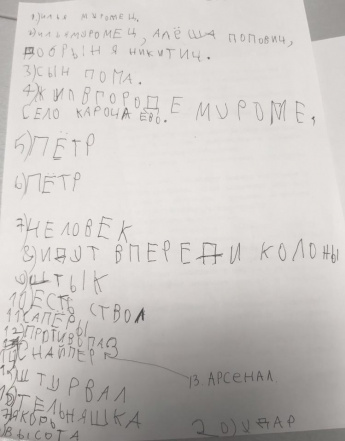 1) ИЛЬЯ МУРОМЕЦ.
2) ИЛЬЯ МУРОМЕЦ, АЛЁША ПОПОВИЧ,
ДОБРЫНЯ НИКИТИЧ.
3) СЫН ПОМА.
4) ЖИЛ В ГОРОДЕ МУРОМЕ,
СЕЛО КАРОЧАЕВО.
5) ПЁТР
6) ПЁТР
7) НЕЛОВЕК
8) ИДУТ ВПЕРЕДИ КОЛОНЫ
9) ШТЫК
10 ЕСТЬ СТВОЛ
11 САПЁР
12 ПРОТИВОГАЗ
14 СНАЙПЕР
13. АРСЕНАЛ
15) ШТУРВАЛ
16) ТЕЛЬНЯШКА
17) ЯКОРЬ
ВЫСОТА
20) УДАР